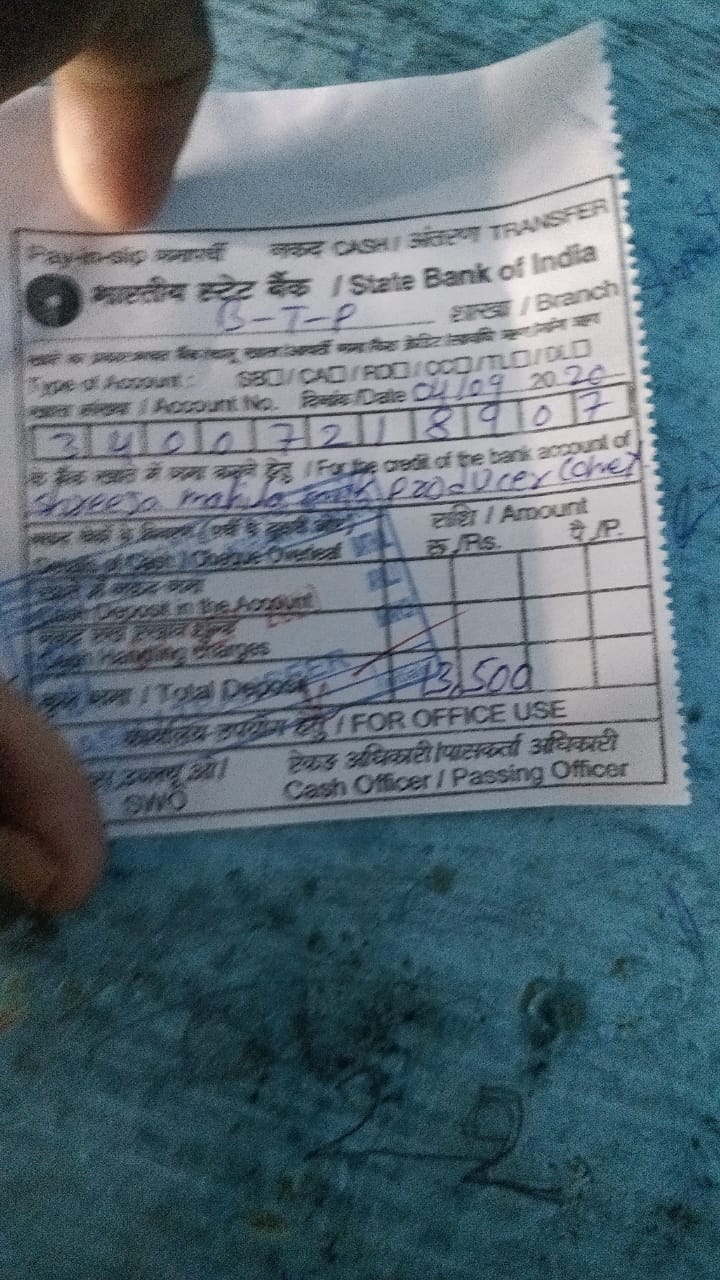 Pay-in-slip जमापर्ची नकद CASH / अंतरण TRANSFER
भारतीय स्टेट बैंक / State Bank of India
B-T-P शाखा / Branch
Type of Account: SB☐/CA☐/RD☐/CC☐/TL☐/DL☐
खाता संख्या / Account No. दिनांक/Date 04/09 2020
34007218907
के बैंक खाते में जमा करने हेतु / For the credit of the bank account of
Shreeja mahila milk producer
राशि / Amount
रु./Rs. पै./P.
Details of Cash / Cheque Overleaf
Cash Deposit in the Account
Cash Handling Charges
कुल जमा / Total Deposit 13,500
कार्यालय उपयोग हेतु / FOR OFFICE USE
एस.डब्ल्यू.ओ/ रोकड़ अधिकारी/पासकर्ता अधिकारी
SWO Cash Officer / Passing Officer
22